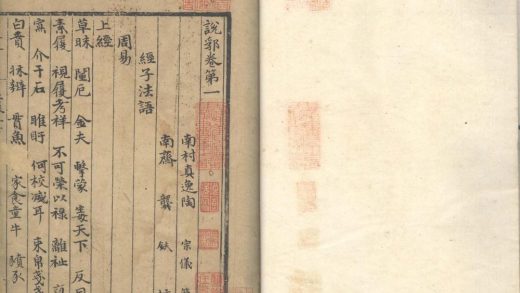 說郛卷第一
南村真逸陶 宗儀
南齋 龔 鈇
經子法語
周易
上經
草昧 閫厄 金夫 擊蒙 毒天下 反目
素履 視履考祥 不可榮以祿 離祉
介于石 睢盱 何校滅耳 束帛戔戔
白賁 袜辯 貫魚 家食童牛 豶豕